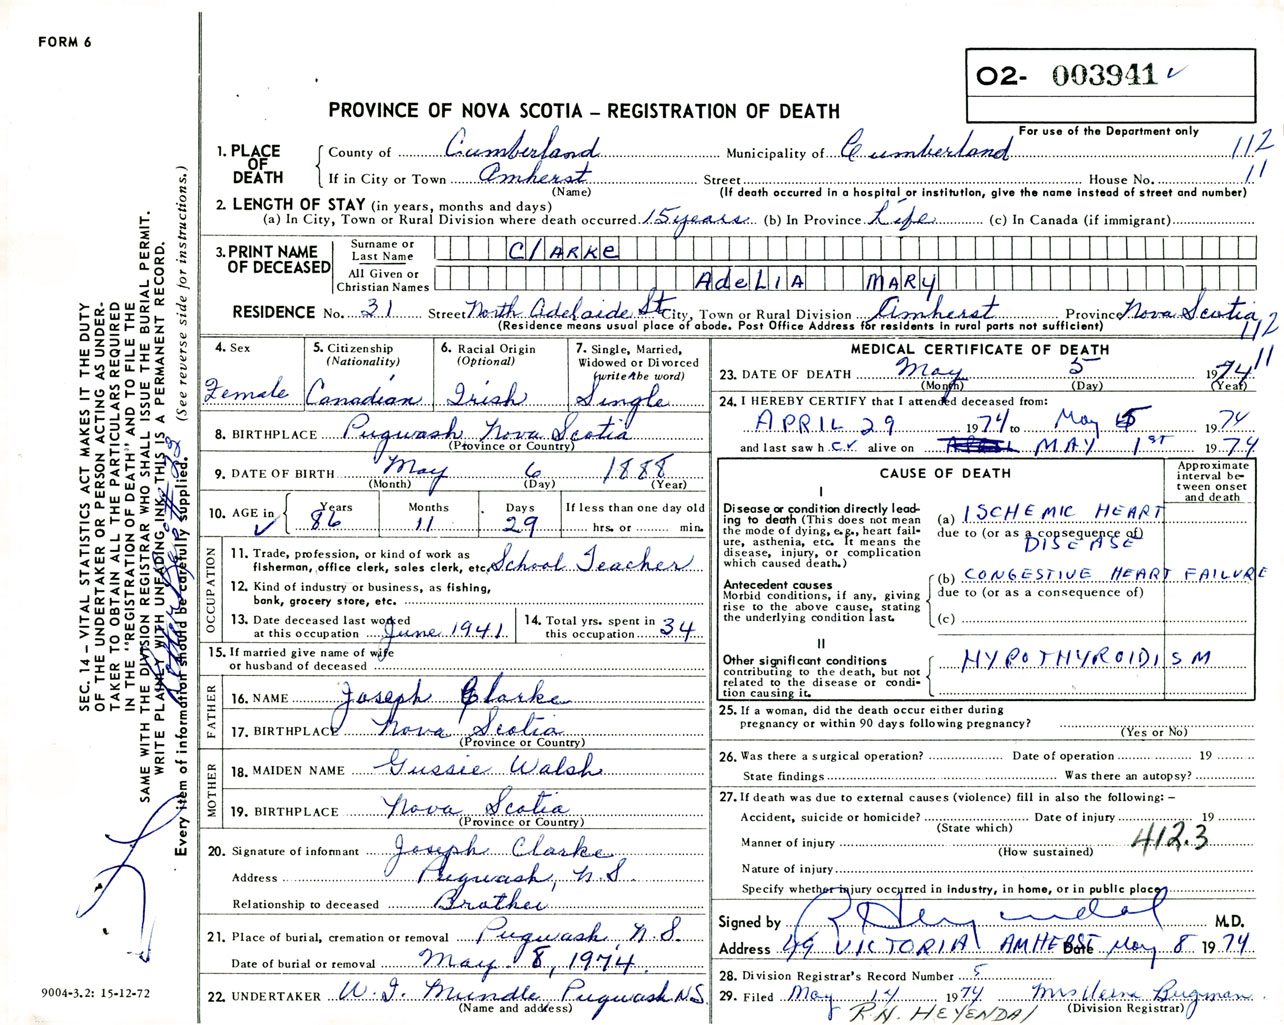 FORM 6
O2- 003941 ✓
For use of the Department only
PROVINCE OF NOVA SCOTIA – REGISTRATION OF DEATH
1. PLACE OF DEATH
County of Cumberland Municipality of Cumberland 112
If in City or Town Amherst Street House No. 11
(Name) (If death occurred in a hospital or institution, give the name instead of street and number)
2. LENGTH OF STAY (in years, months and days)
(a) In City, Town or Rural Division where death occurred 15 years (b) In Province Life (c) In Canada (if immigrant)
3. PRINT NAME OF DECEASED
Surname or Last Name CLARKE
All Given or Christian Names AdeLIA MARY
RESIDENCE No. 31 Street North Adelaide St City, Town or Rural Division Amherst Province Nova Scotia
(Residence means usual place of abode. Post Office Address for residents in rural parts not sufficient) 112
11
4. Sex Female
5. Citizenship (Nationality) Canadian
6. Racial Origin (Optional) Irish
7. Single, Married, Widowed or Divorced (write the word) Single
8. BIRTHPLACE Pugwash Nova Scotia
(Province or Country)
9. DATE OF BIRTH May 6 1888
(Month) (Day) (Year)
10. AGE in ✓ Years 86 Months 11 Days 29 If less than one day old hrs. or min.
OCCUPATION
11. Trade, profession, or kind of work as fisherman, office clerk, sales clerk, etc. School Teacher
12. Kind of industry or business, as fishing, bank, grocery store, etc.
13. Date deceased last worked at this occupation June 1941
14. Total yrs. spent in this occupation 34
15. If married give name of wife or husband of deceased
FATHER
16. NAME Joseph Clarke
17. BIRTHPLACE Nova Scotia
(Province or Country)
MOTHER
18. MAIDEN NAME Gussie Walsh
19. BIRTHPLACE Nova Scotia
(Province or Country)
20. Signature of informant Joseph Clarke
Address Pugwash, N.S.
Relationship to deceased Brother
21. Place of burial, cremation or removal Pugwash, N.S.
Date of burial or removal May 8, 1974
22. UNDERTAKER W. J. Mundle Pugwash N.S.
(Name and address)
MEDICAL CERTIFICATE OF DEATH
23. DATE OF DEATH May 5 1974
(Month) (Day) (Year)
24. I HEREBY CERTIFY that I attended deceased from:
APRIL 29 1974 to May 5 1974
and last saw her alive on MAY 1ST 1974
CAUSE OF DEATH
Approximate interval between onset and death
I
Disease or condition directly leading to death (This does not mean the mode of dying, e.g., heart failure, asthenia, etc. It means the disease, injury, or complication which caused death.)
(a) ISCHEMIC HEART
due to (or as a consequence of)
DISEASE
Antecedent causes
Morbid conditions, if any, giving rise to the above cause, stating the underlying condition last.
(b) CONGESTIVE HEART FAILURE
due to (or as a consequence of)
(c)
II
Other significant conditions contributing to the death, but not related to the disease or condition causing it.
HYPOTHYROIDISM
25. If a woman, did the death occur either during pregnancy or within 90 days following pregnancy?
(Yes or No)
26. Was there a surgical operation? Date of operation 19
State findings Was there an autopsy?
27. If death was due to external causes (violence) fill in also the following: –
Accident, suicide or homicide? Date of injury 19
(State which)
Manner of injury 412.3
(How sustained)
Nature of injury
Specify whether injury occurred in industry, in home, or in public place
Signed by R Heyendal M.D.
Address 49 VICTORIA AMHERST Date May 8 1974
28. Division Registrar's Record Number 5
29. Filed May 14 1974 Mrs Verna Bugman
(Division Registrar)
R.H. HEYENDAL
SEC. 14 – VITAL STATISTICS ACT MAKES IT THE DUTY
OF THE UNDERTAKER OR PERSON ACTING AS UNDER-
TAKER TO OBTAIN ALL THE PARTICULARS REQUIRED
IN THE "REGISTRATION OF DEATH" AND TO FILE THE
SAME WITH THE DIVISION REGISTRAR WHO SHALL ISSUE THE BURIAL PERMIT.
WRITE PLAINLY WITH UNFADING INK, THIS IS A PERMANENT RECORD.
Every item of information should be carefully supplied. (See reverse side for instructions.)
9004-3.2: 15-12-72